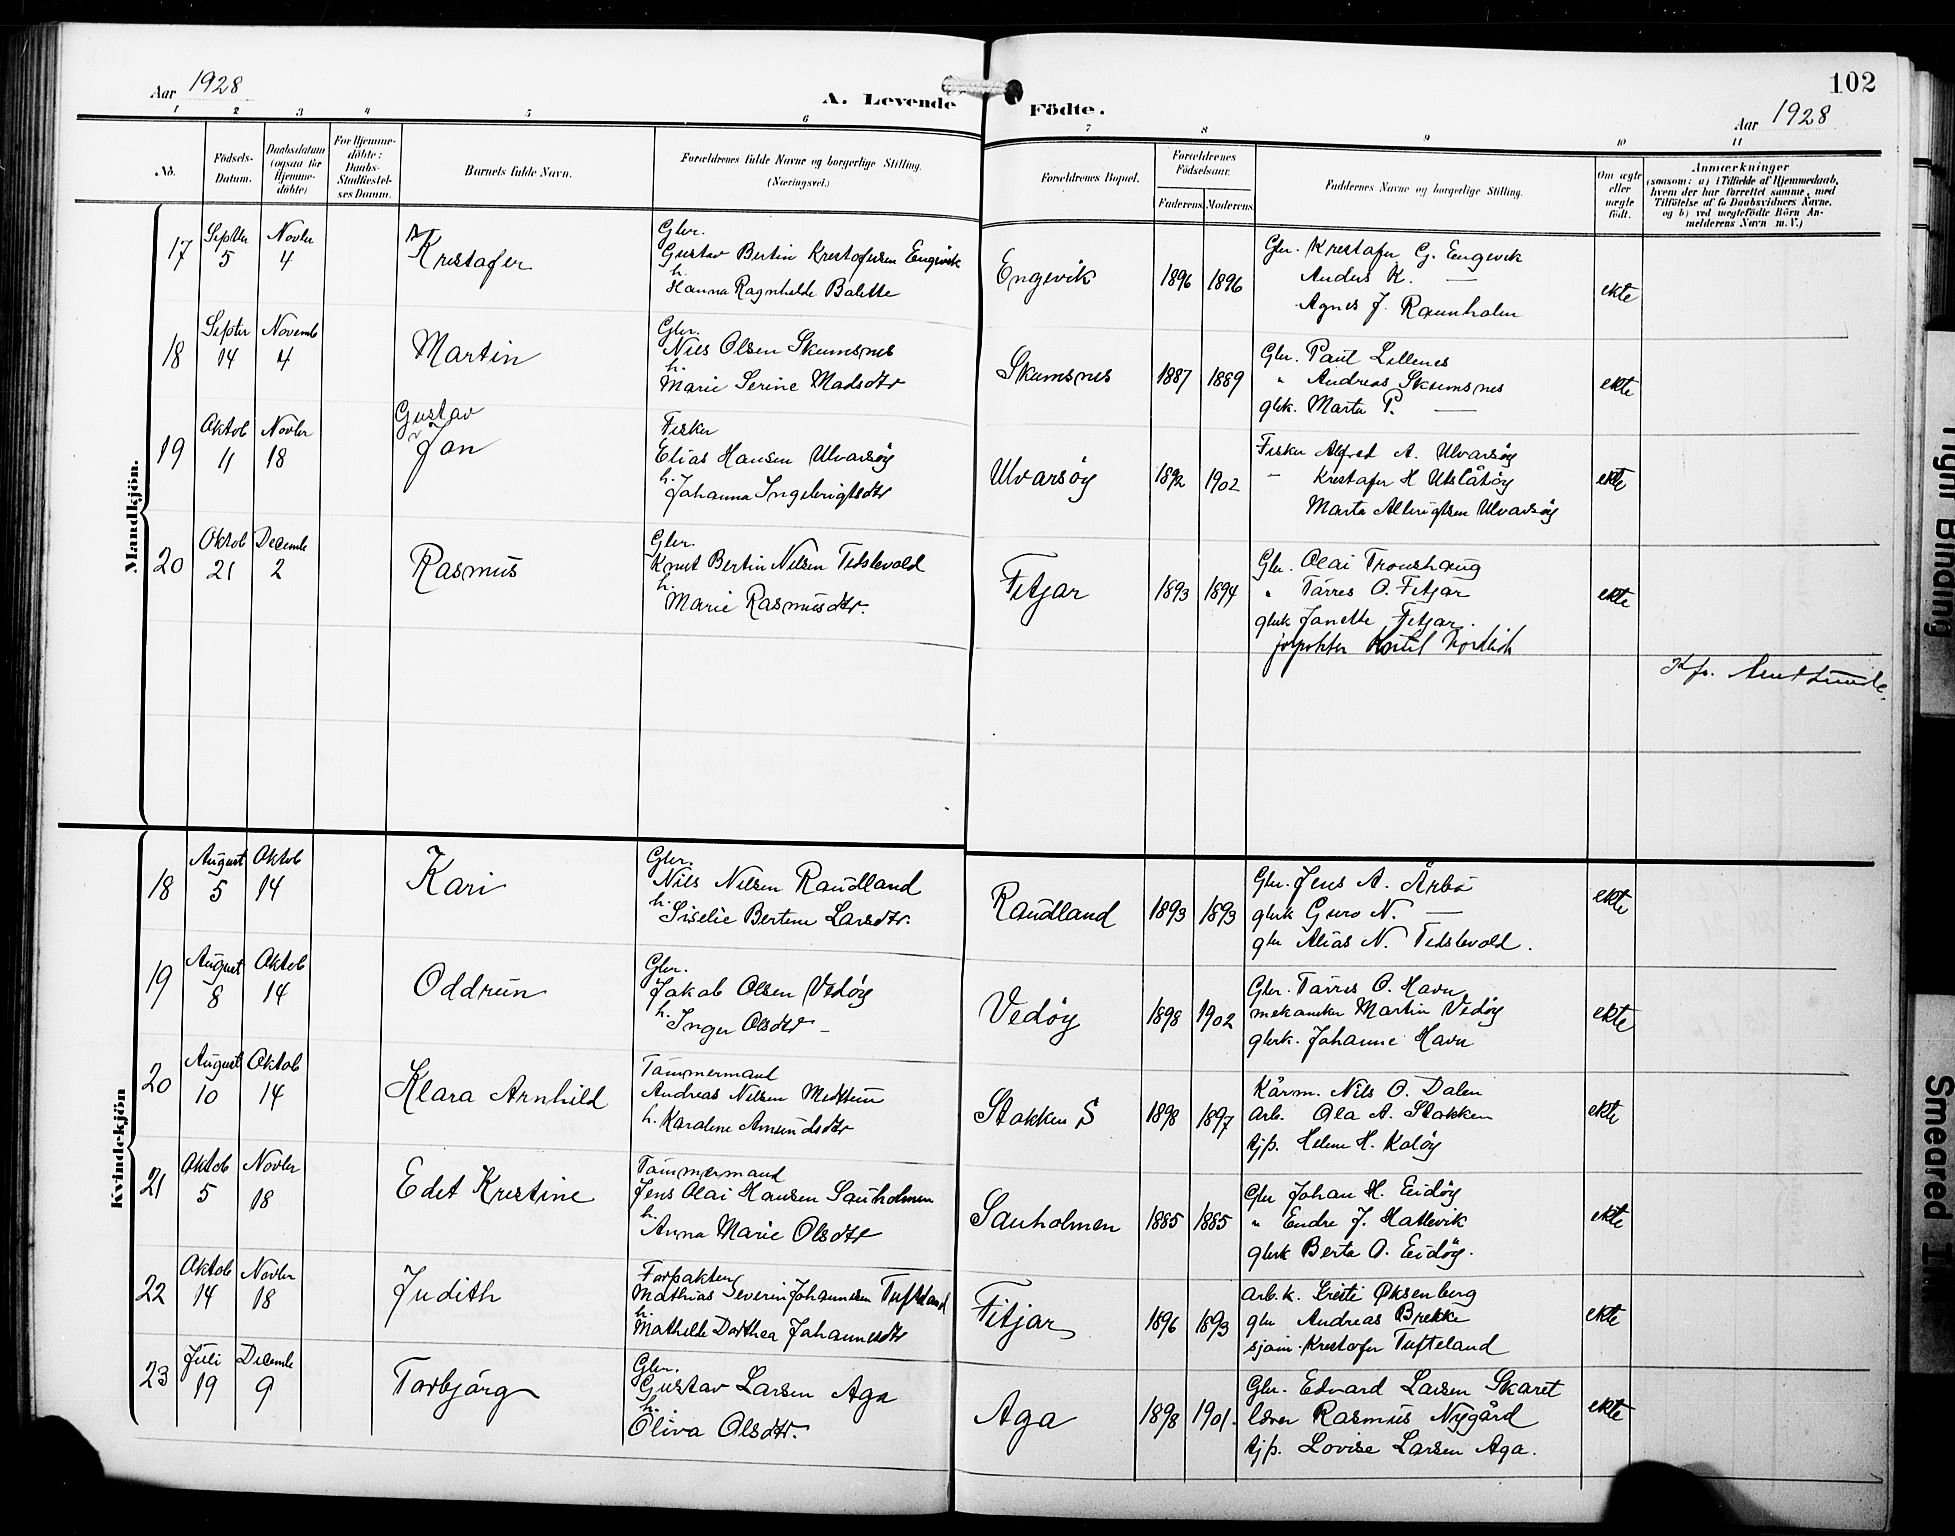 Aar 1928
A. Levende Födte.
102
Aar 1928
1 2 3 4 5 6 7 8 9 10 11
No.
Födsels-Datum.
Daabsdatum (ogsaa for Hjemme-döbte)
For Hjemme-döbte: Daabs-Stadfæstel-ses Datum.
Barnets fulde Navn.
Forældrenes fulde Navne og borgerlige Stilling. (Næringsvei.)
Forældrenes Bopæl.
Forældrenes Födselsaar.
Faderens. Moderens.
Faddernes Navne og borgerlige Stilling.
Om ægte eller uægte födt.
Anmærkninger
(saasom: a) i Tilfælde af Hjemmedaab,
hvem der har forrettet samme, med
Tilföielse af to Daabsvidners Navne,
og b) ved uægtefödte Börn An-
melderens Navn m. V.)
Mandkjön.
17 Septbr 5 Novbr 4 Krestafer
Gbr.
Gustav Bertin Krestofersen Engevik
h.
Hanna Ragnhilde Balette
Engevik 1896 1896
Gbr. Krestafer G. Engevik
Anders K. —
Agnes J. Raunholm
ekte
18 Septbr 14 Novemb 4 Martin
Gbr.
Nils Olsen Skumsnes
h.
Marie Serine Madsdtr
Skumsnes 1887 1889
Gbr. Paul Lillenes
" Andreas Skumsnes
gbrk. Marta P. —
ekte
19 Oktob 11 Novbr 18 Gustav Jan
Fisker
Elias Hansen Ulvarsøy
h.
Johanna Ingebrigtsdtr
Ulvarsøy 1892 1902
Fisker Alfred A. Ulvarsøy
— Krestafer H Utslåtøy
Marta Albrigtsen Ulvarsøy
ekte
20 Oktob 21 Decembr 2 Rasmus
Gbr.
Knut Bertin Nilsen Tislevold
h.
Marie Rasmusdtr.
Fitjar 1893 1894
Gbr. Olai Tronshaug
" Tårres O. Fitjar
gbrk Janette Fitjar.
forpakter
ekte
Kvindekjön
18 August 5 Oktob 14 Kari
Gbr.
Nils Nilsen Raudland
h.
Siselie Bertine Larsdtr.
Raudland 1893 1893
Gbr. Jens A. Årbø
gbrk Guro N. —
gbr Alias N. Tislevold.
ekte
19 August 8 Oktob 14 Oddrun
Gbr.
Jakob Olsen Vedøy
h.
Inger Olsdtr —
Vedøy 1898 1902
Gbr. Tårres O. Havn
mekaniker Martin Vedøy
gbrk. Johanne Havn
ekte
20 August 10 Oktob 14 Klara Arnhild
Tømmermand
Andreas Nilsen Mehtun
h. Karoline Amundsdtr
Stokken S 1898 1897
Kårm. Nils O. Dalen
Arb. Ola A. Stokken
tjp. Helene H. Koløy
ekte
21 Oktob 5 Novbr 18 Edit Krestine
Tømmermand
Jens Olai Hansen Sauholmen
h.
Anna Marie Olsdtr
Sauholmen 1885 1885
Gbr Johan H. Eidøy
" Endre J. Hatlevik
gbrk Berta O. Eidøy.
ekte
22 Oktob 14 Novbr 18 Judith
Forpakter
Mathias Severin Johannesen Tufteland
h.
Mathilde Dorthea Johannesdtr
Fitjar 1896 1893
arb.k. Kristi Øksenberg
gbr Andreas Brekke
sjøm. Krestofer Tufteland
ekte
23 Juli 19 Decembr 9 Torbjørg
Gbr.
Gustav Larsen Aga
h.
Oliva Olsdtr.
Aga 1898 1901.
Gbr. Edvard Larsen Skaret
lærer Rasmus Nygård
tjp. Lovise Larsen Aga.
ekte
Tight Binding
Smeared Ink